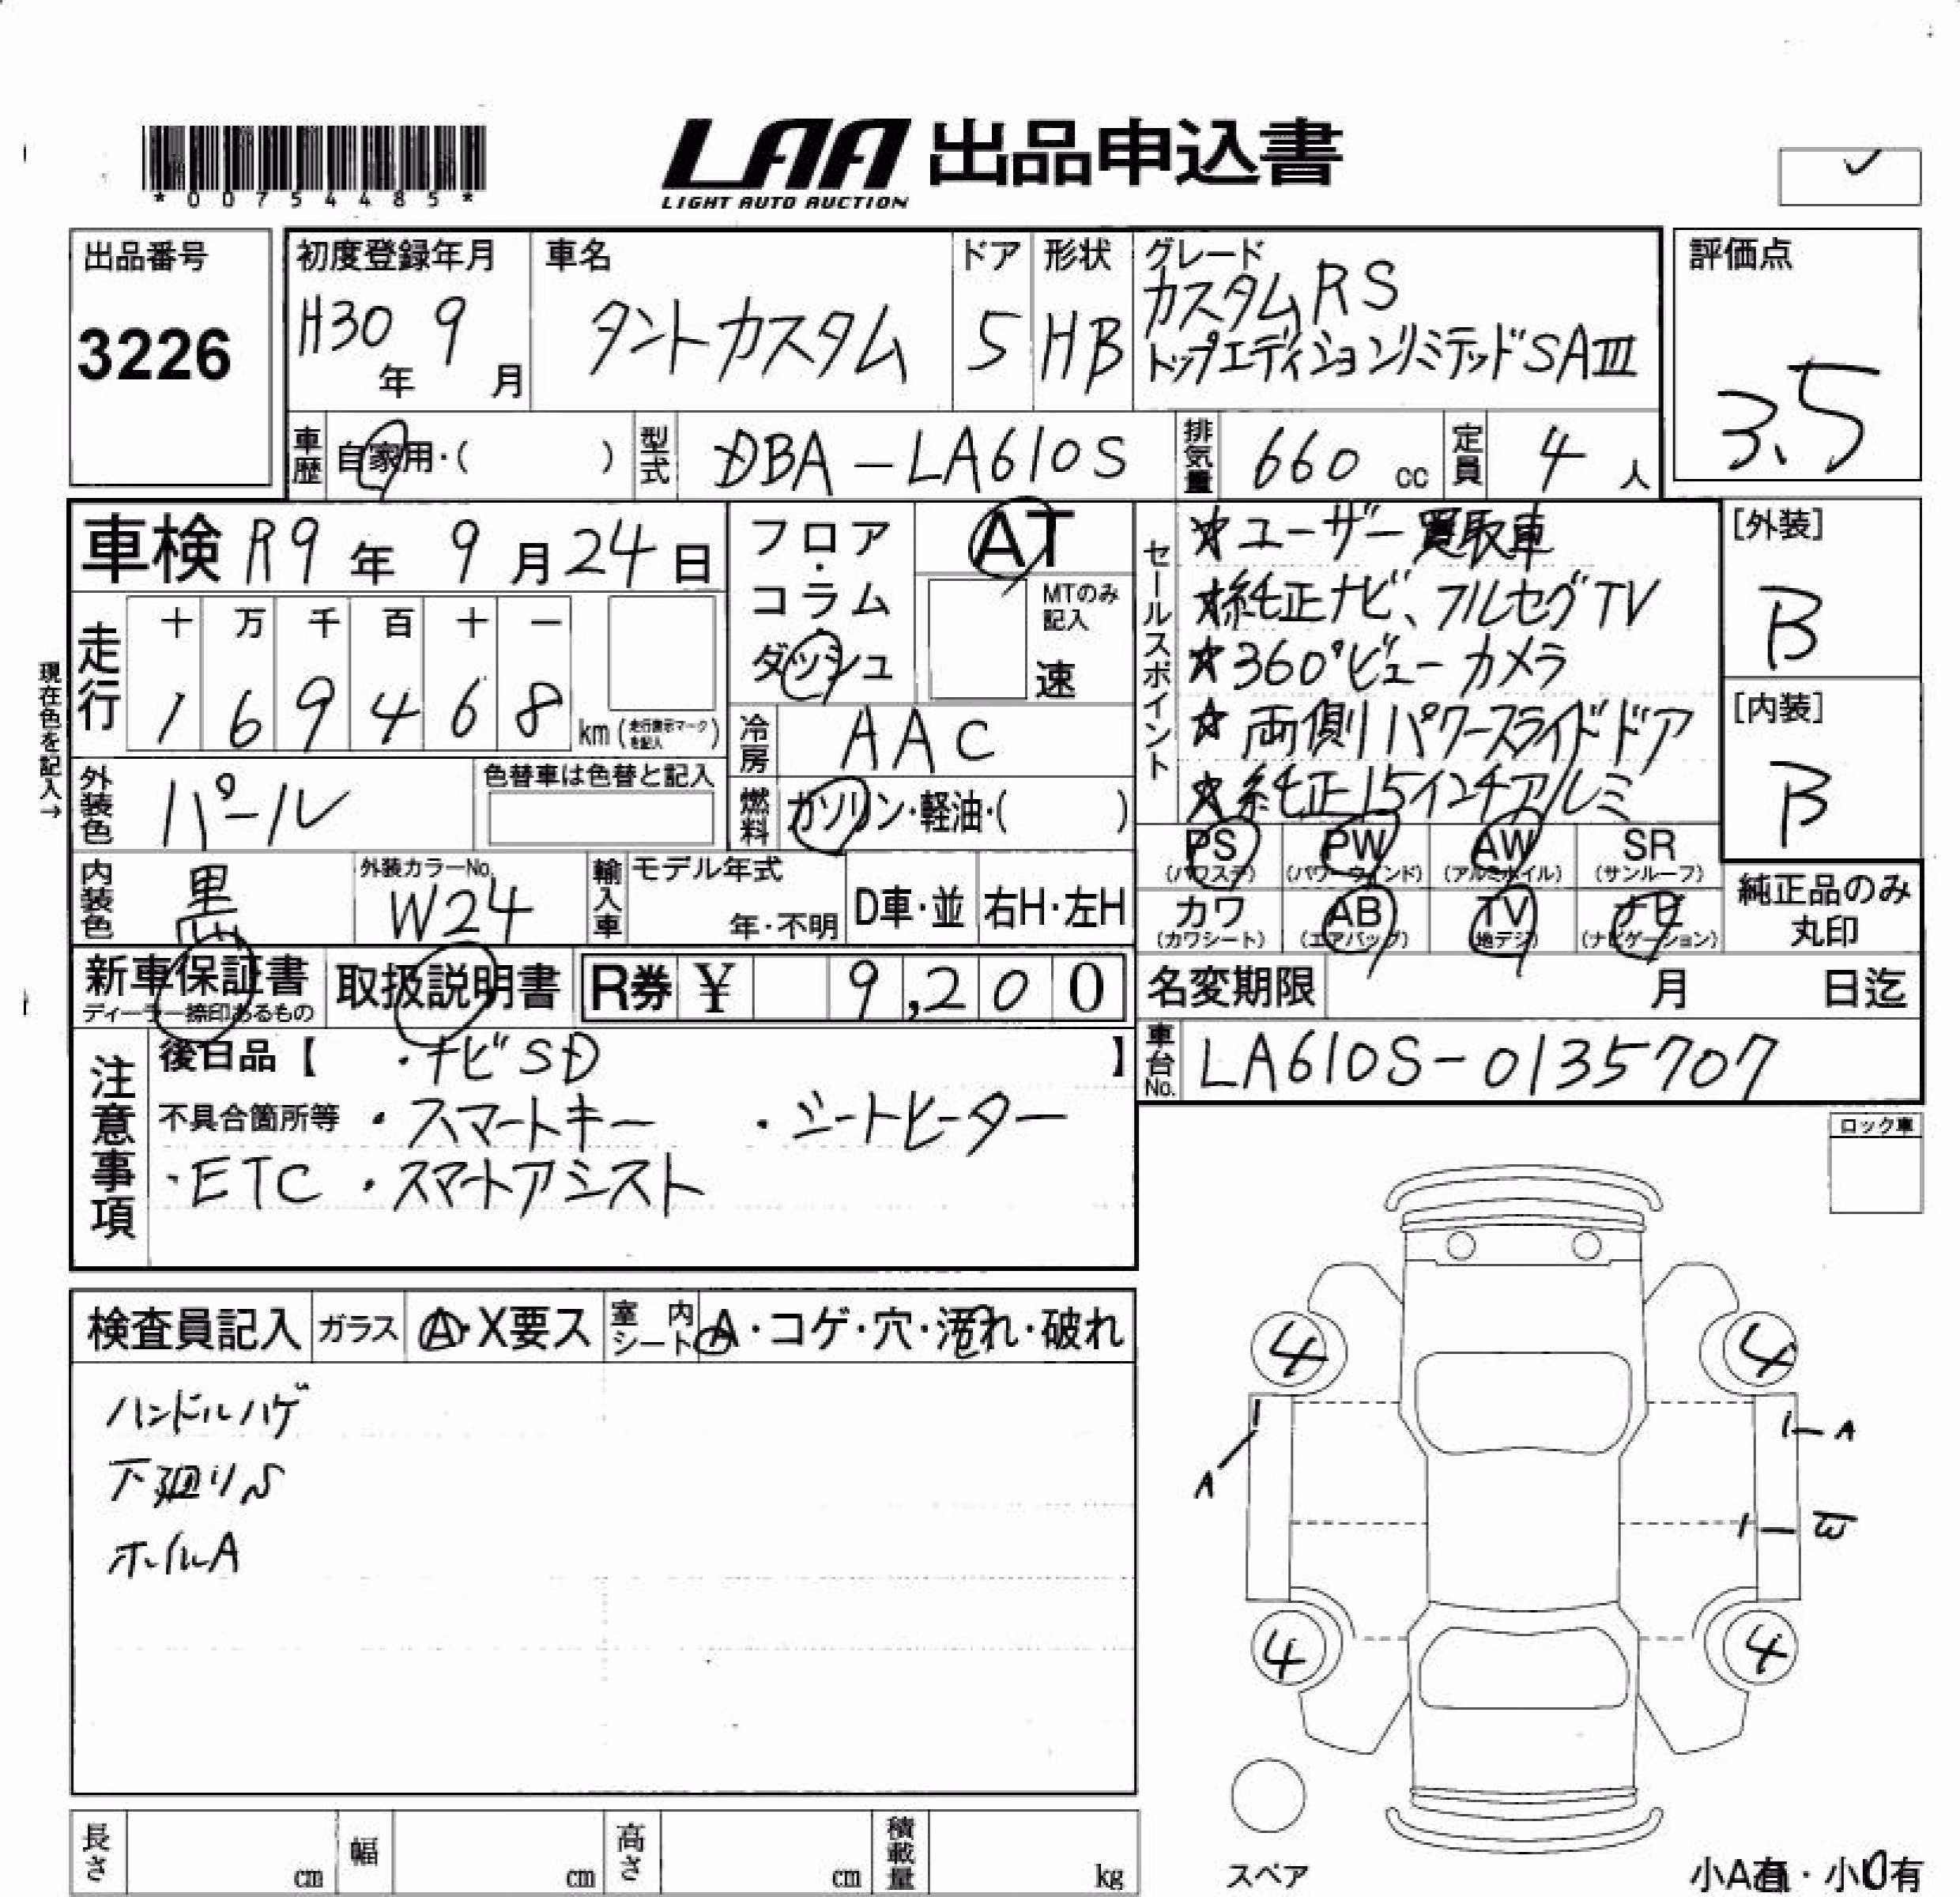 *00754485*
LAA 出品申込書
LIGHT AUTO AUCTION
出品番号
3226
初度登録年月
H30年 9月
車名
タントカスタム
ドア
5
形状
HB
グレード
カスタムRS
トップエディションリミテッドSAⅢ
評価点
3.5
車歴 自家用・( )
型式 DBA-LA610S
排気量 660 cc
定員 4 人
車検 R9年 9月24日
フロア・コラム・ダッシュ
AT
MTのみ記入
速
セールスポイント
★ユーザー買取車
★純正ナビ、フルセグTV
★360°ビューカメラ
★両側パワースライドドア
★純正15インチアルミ
[外装]
B
[内装]
B
現在色を記入→
走行
十 万 千 百 十 一
1 6 9 4 6 8 km (走行表示マークを記入)
冷房 AAC
外装色 パール
色替車は色替と記入
燃料 ガソリン・軽油・( )
PS (パワステ) PW (パワーウインド) AW (アルミホイル) SR (サンルーフ)
カワ (カワシート) AB (エアバッグ) TV (地デジ) ナビ (ナビゲーション)
純正品のみ
丸印
内装色 黒
外装カラーNo.
W24
輸入車
モデル年式
年・不明
D車・並
右H・左H
新車保証書
ディーラー捺印あるもの
取扱説明書
R券 ¥ 9,200
名変期限 月 日迄
車台No. LA610S-0135707
注意事項
後日品【 ・ナビSD 】
不具合箇所等 ・スマートキー ・シートヒーター
・ETC ・スマートアシスト
ロック車
検査員記入
ガラス A・X要ス
室内シート A・コゲ・穴・汚れ・破れ
ハンドルハゲ
下廻りS
ホイルA
4 4
A
A
W
4 4
スペア
長さ cm
幅 cm
高さ cm
積載量 kg
小A有・小U有